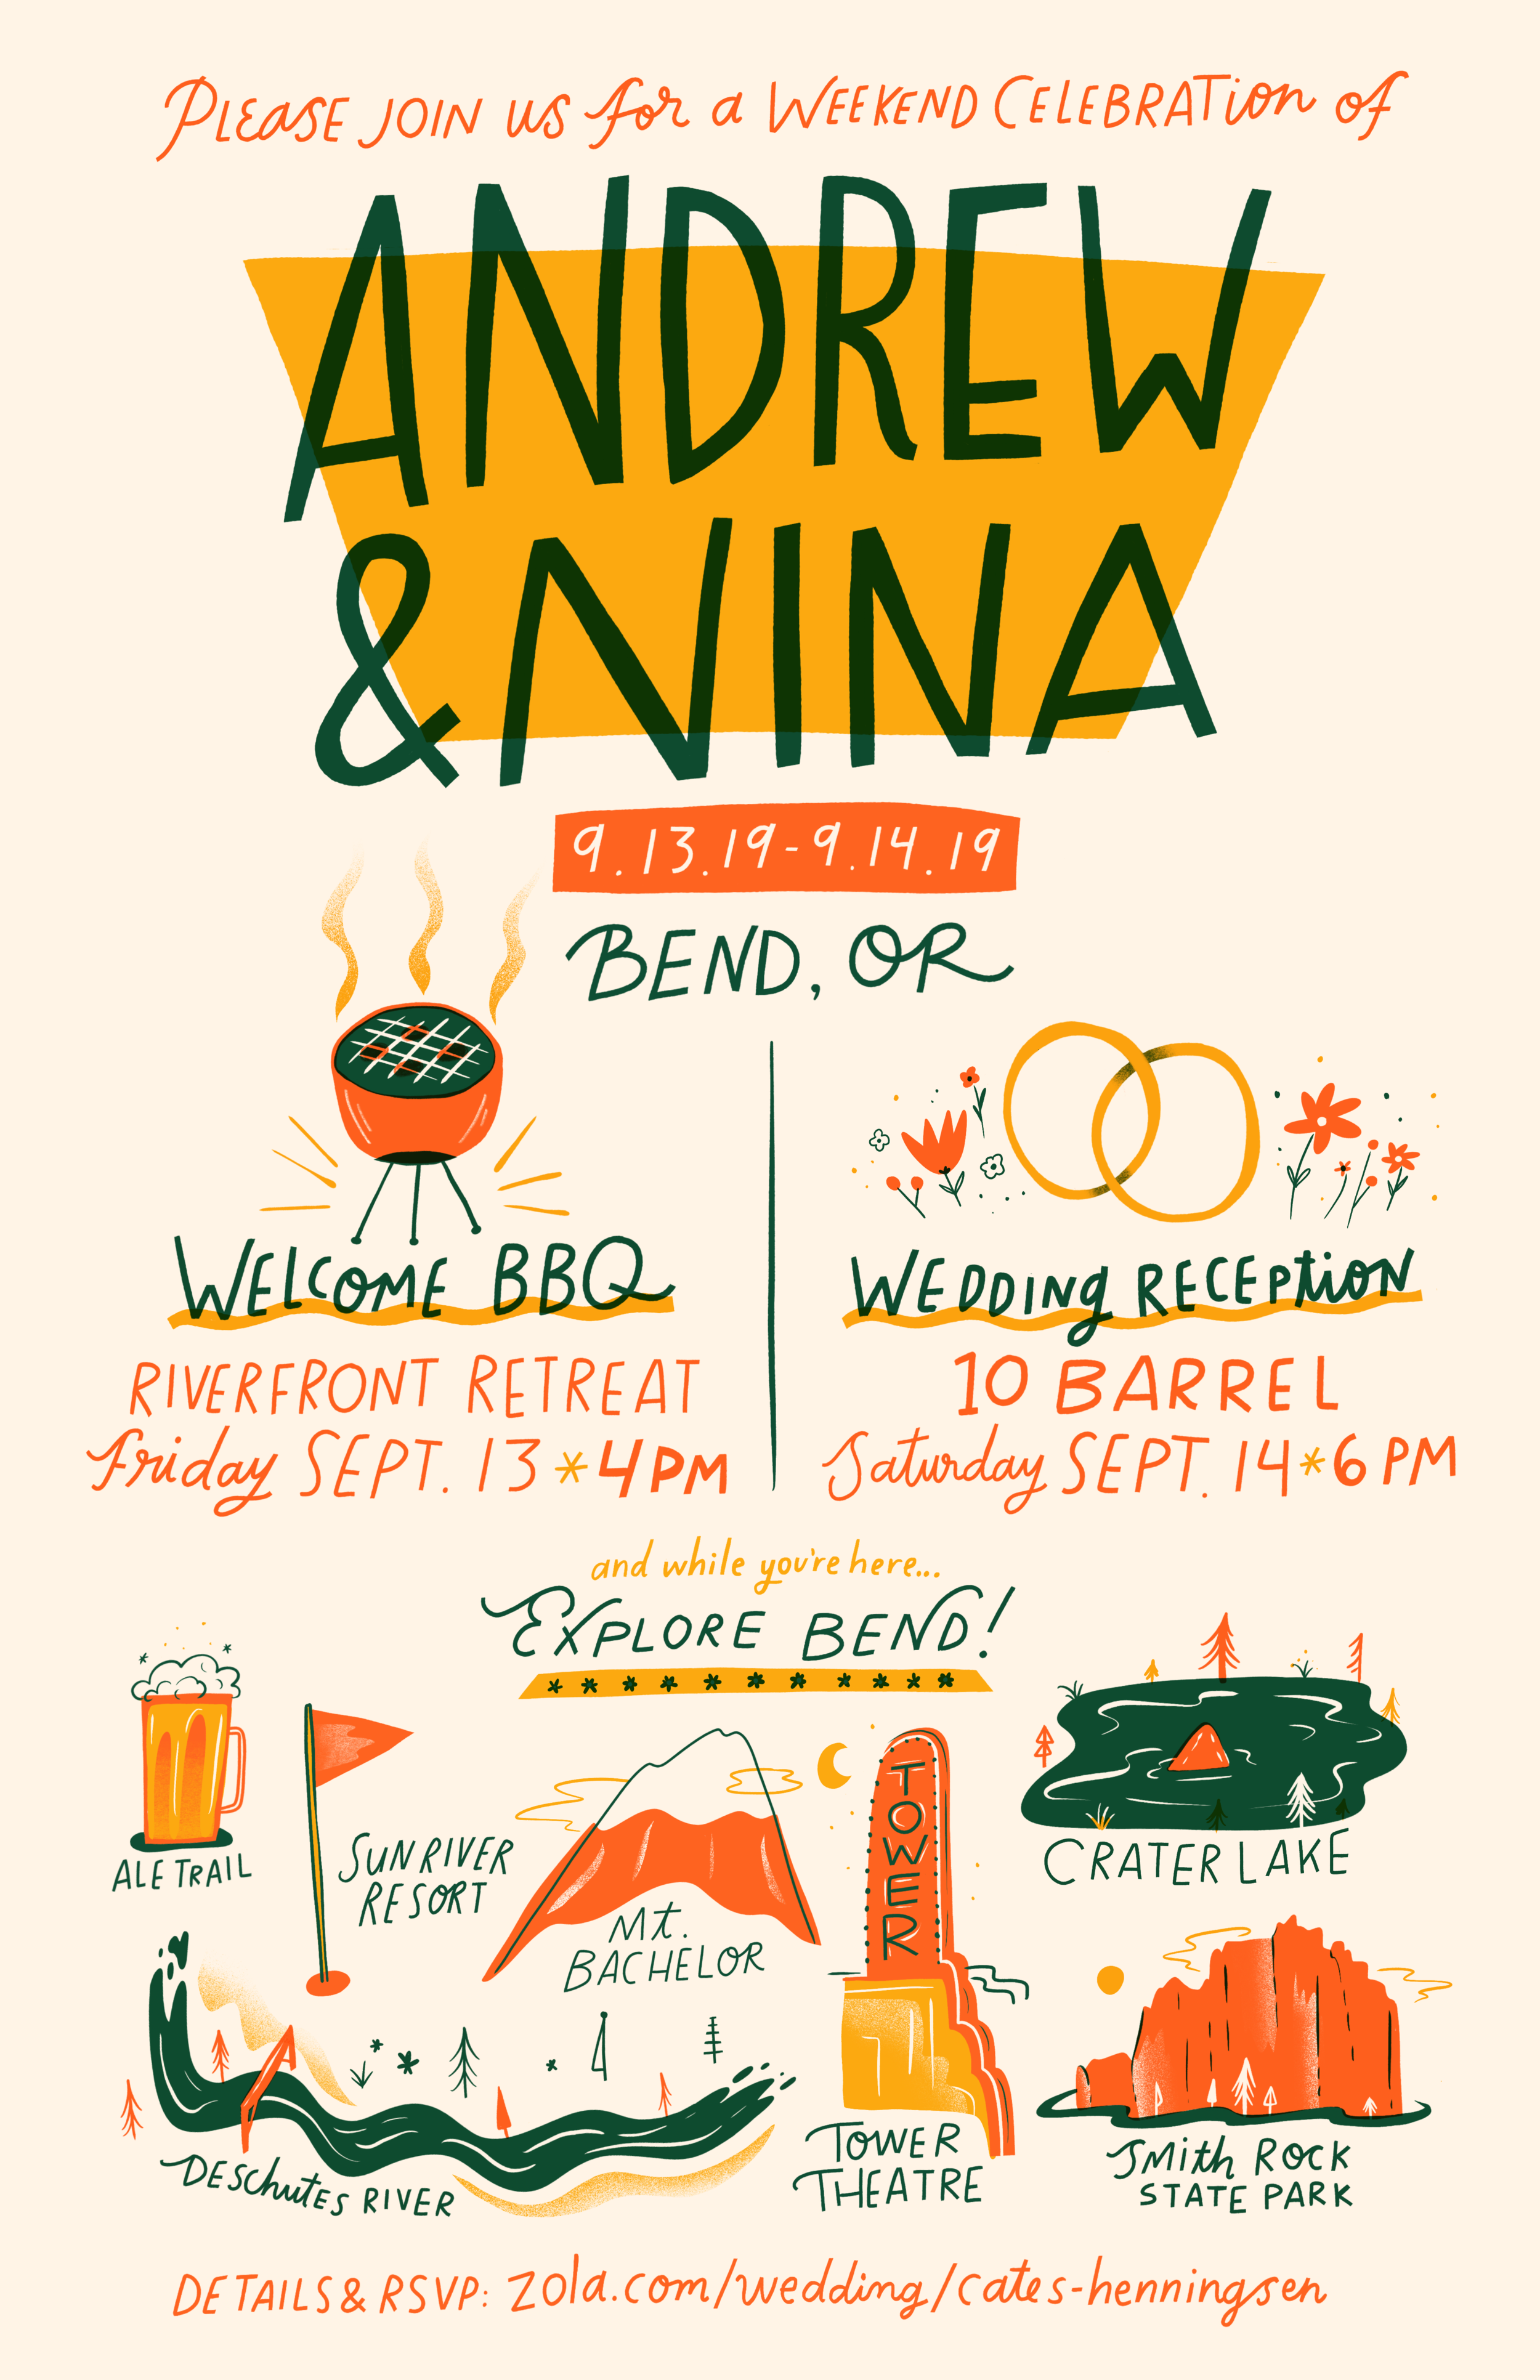 Please join us for a Weekend Celebration of
ANDREW
& NINA
9.13.19-9.14.19
BEND, OR
WELCOME BBQ
RIVERFRONT RETREAT
Friday SEPT. 13 * 4PM
WEDDING RECEPTION
10 BARREL
Saturday SEPT. 14 * 6 PM
and while you're here...
EXPLORE BEND!
ALE TRAIL
SUNRIVER
RESORT
Mt.
BACHELOR
TOWER
CRATER LAKE
DESCHUTES RIVER
TOWER
THEATRE
SMITH ROCK
STATE PARK
DETAILS & RSVP: zola.com/wedding/cates-henningsen